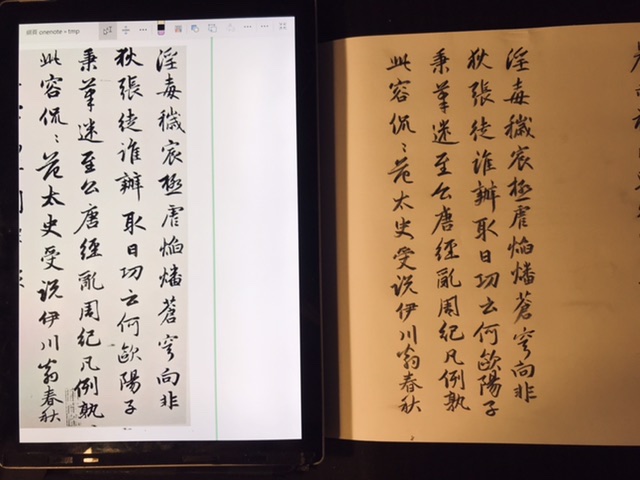 onenote » tmp
淫毒穢宸極虐焰燔蒼穹向非
狄張徒誰辦取日功云何歐陽子
秉筆迷至公唐經亂周紀凡例孰
此容侃〻范太史受說伊川翁春秋
淫毒穢宸極虐焰燔蒼穹向非
狄張徒誰辦取日功云何歐陽子
秉筆迷至公唐經亂周紀凡例孰
此容侃〻范太史受說伊川翁春秋